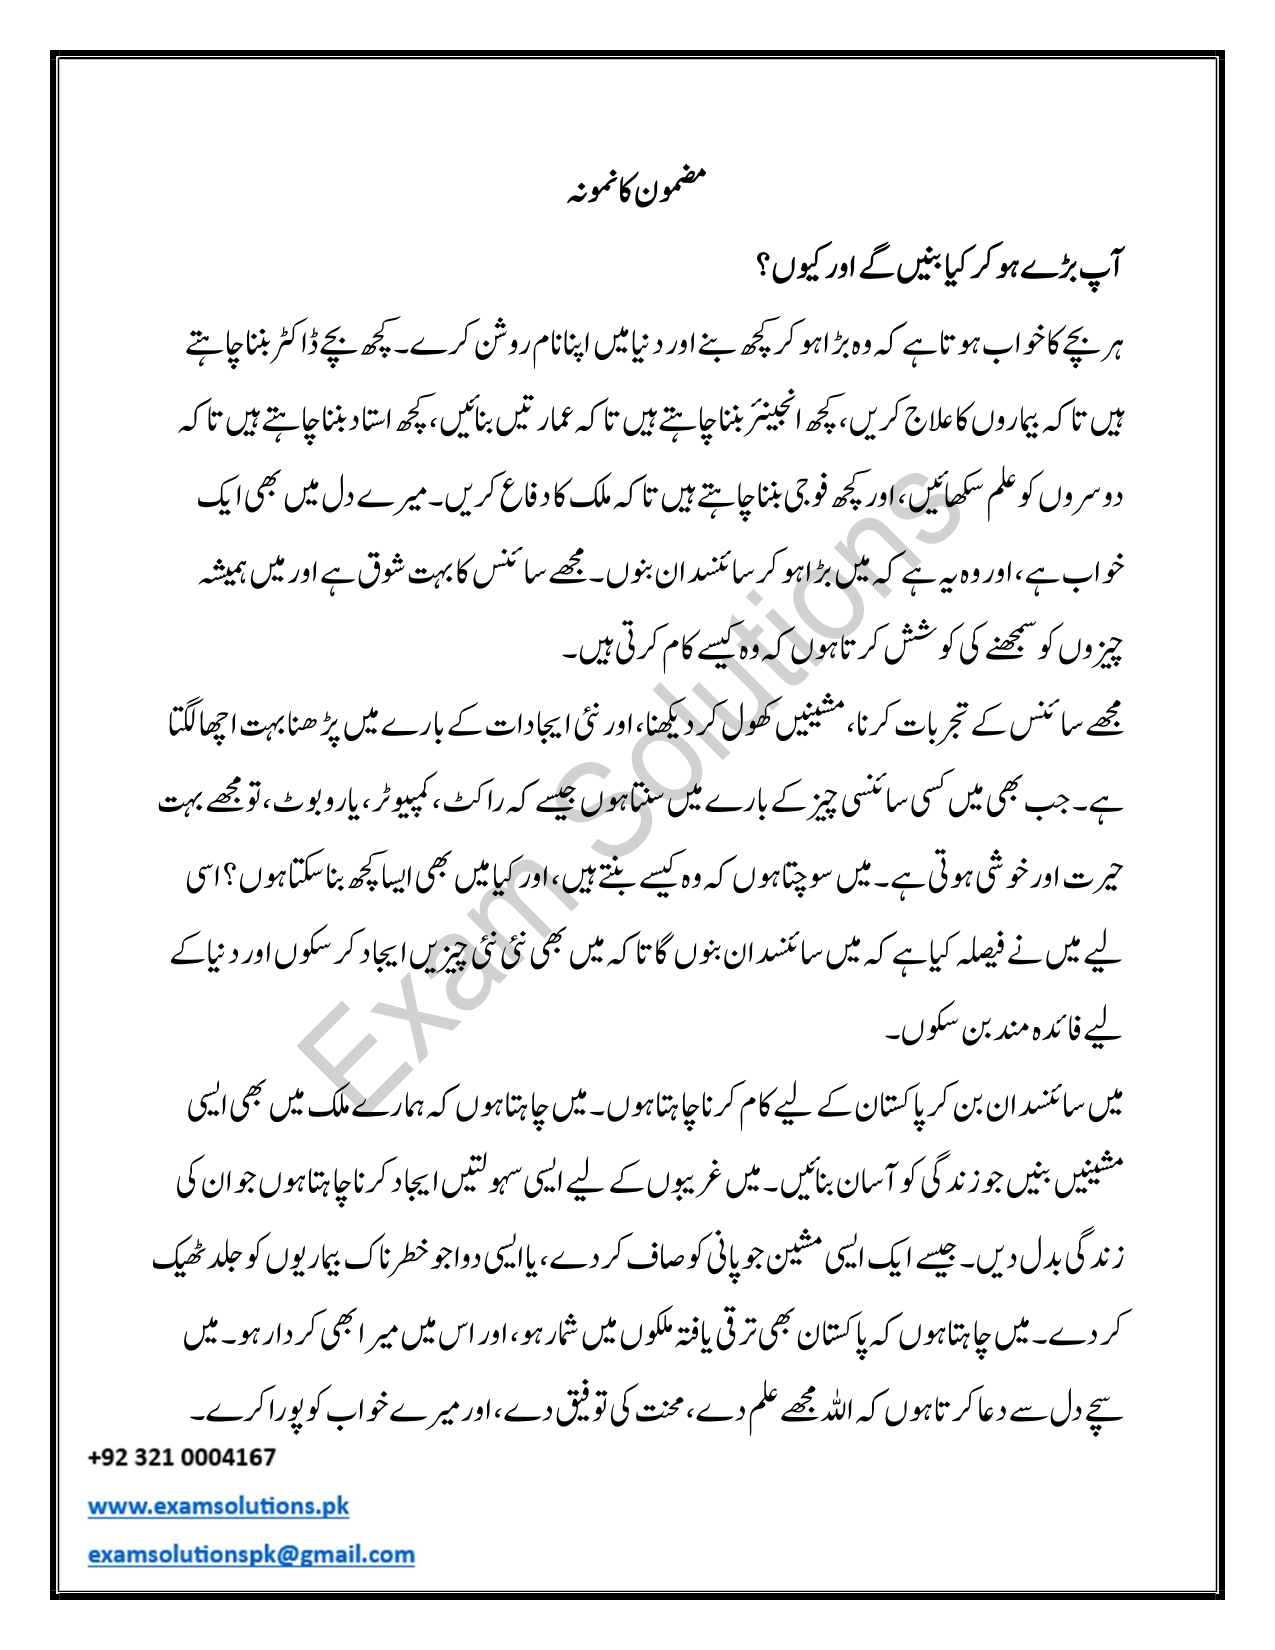 مضمون کا نمونہ
آپ بڑے ہو کر کیا بنیں گے اور کیوں؟
ہر بچے کا خواب ہوتا ہے کہ وہ بڑا ہو کر کچھ بنے اور دنیا میں اپنا نام روشن کرے۔ کچھ بچے ڈاکٹر بننا چاہتے
ہیں تاکہ بیماروں کا علاج کریں، کچھ انجینئر بننا چاہتے ہیں تاکہ عمارتیں بنائیں، کچھ استاد بننا چاہتے ہیں تاکہ
دوسروں کو علم سکھائیں، اور کچھ فوجی بننا چاہتے ہیں تاکہ ملک کا دفاع کریں۔ میرے دل میں بھی ایک
خواب ہے، اور وہ یہ ہے کہ میں بڑا ہو کر سائنسدان بنوں۔ مجھے سائنس کا بہت شوق ہے اور میں ہمیشہ
چیزوں کو سمجھنے کی کوشش کرتا ہوں کہ وہ کیسے کام کرتی ہیں۔
مجھے سائنس کے تجربات کرنا، مشینیں کھول کر دیکھنا، اور نئی ایجادات کے بارے میں پڑھنا بہت اچھا لگتا
ہے۔ جب بھی میں کسی سائنسی چیز کے بارے میں سنتا ہوں جیسے کہ راکٹ، کمپیوٹر، یا روبوٹ، تو مجھے بہت
حیرت اور خوشی ہوتی ہے۔ میں سوچتا ہوں کہ وہ کیسے بنتے ہیں، اور کیا میں بھی ایسا کچھ بنا سکتا ہوں؟ اسی
لیے میں نے فیصلہ کیا ہے کہ میں سائنسدان بنوں گا تاکہ میں بھی نئی نئی چیزیں ایجاد کر سکوں اور دنیا کے
لیے فائدہ مند بن سکوں۔
میں سائنسدان بن کر پاکستان کے لیے کام کرنا چاہتا ہوں۔ میں چاہتا ہوں کہ ہمارے ملک میں بھی ایسی
مشینیں بنیں جو زندگی کو آسان بنائیں۔ میں غریبوں کے لیے ایسی سہولتیں ایجاد کرنا چاہتا ہوں جو ان کی
زندگی بدل دیں۔ جیسے ایک ایسی مشین جو پانی کو صاف کر دے، یا ایسی دوا جو خطرناک بیماریوں کو جلد ٹھیک
کر دے۔ میں چاہتا ہوں کہ پاکستان بھی ترقی یافتہ ملکوں میں شمار ہو، اور اس میں میرا بھی کردار ہو۔ میں
سچے دل سے دعا کرتا ہوں کہ اللہ مجھے علم دے، محنت کی توفیق دے، اور میرے خواب کو پورا کرے۔
Exam Solutions
+92 321 0004167
www.examsolutions.pk
examsolutionspk@gmail.com